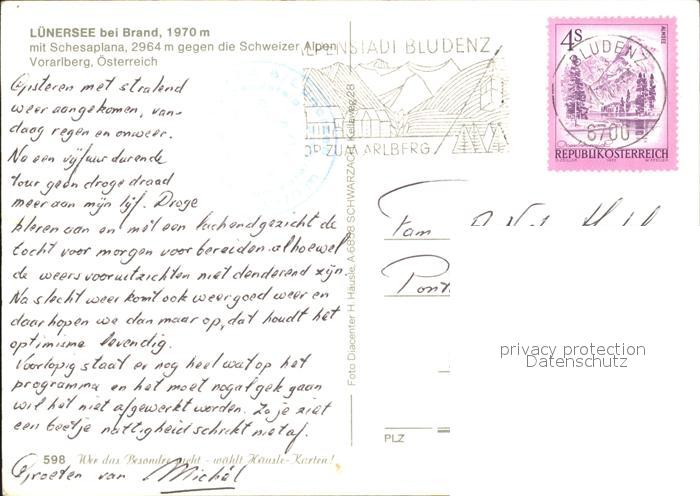 LÜNERSEE bei Brand, 1970 m
mit Schesaplana, 2964 m gegen die Schweizer Alpen
Vorarlberg, Österreich
Gisteren met stralend
weer aangekomen, van-
daag regen en onweer.
Na een vijfuur durende
tour geen droge draad
meer aan mijn lijf. Droge
kleren aan en met een lachend gezicht de
tocht voor morgen voorbereiden alhoewel
de weersvooruitzichten niet denderend zijn.
Na slecht weer komt ook weer goed weer en
daar hopen we dan maar op, dat houdt het
optimisme levendig.
Voorlopig staat er nog heel wat op het
programma en het moet nogal gek gaan
wil het niet afgewerkt worden. Zo je ziet
een beetje nattigheid schrikt niet af.
Groeten van Michël
598 Wer das Besondere sieht - wählt Häusle-Karten!
Foto Diacenter H. Häusle, A-6858 SCHWARZACH, Kellaweg 28
ALPENSTADT BLUDENZ
BLUDENZ
6700
4S
ALMSEE
REPUBLIK ÖSTERREICH
Fam
PLZ
privacy protection
Datenschutz